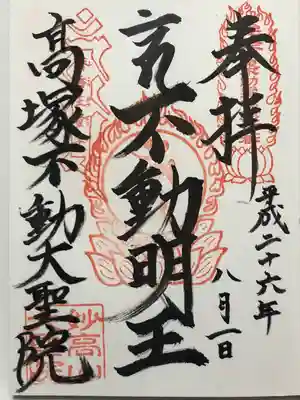 奉拝
平成二十六年
八月一日
不動明王
高塚不動大聖院